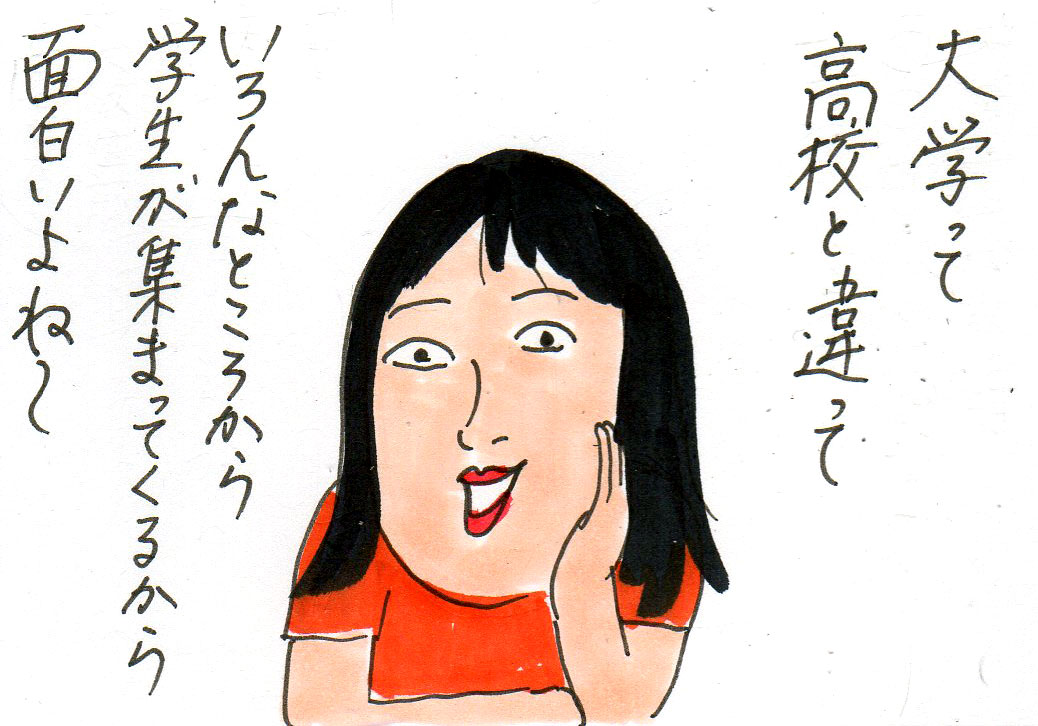 大学って
高校と違って
いろんなところから
学生が集まってくるから
面白いよね〜